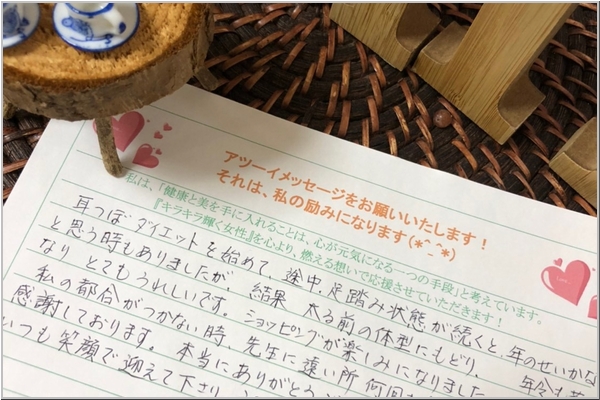 アツーイメッセージをお願いいたします！
それは、私の励みになります(*^_^*)
私は、「健康と美を手に入れることは、心が元気になる一つの手段」と考えています。
『キラキラ輝く女性』を心より、燃える想いで応援させていただきます！
耳つぼダイエットを始めて、途中、足踏み状態が続くと、年のせいかな
と思う時もありましたが、結果 太る前の体型にもどり、年令も
なり とてもうれしいです。ショッピングが楽しみになりました。
私の都合がつかない時、先生に遠い所 何回
感謝しております。本当にありがとう
いつも笑顔で迎えて下さり